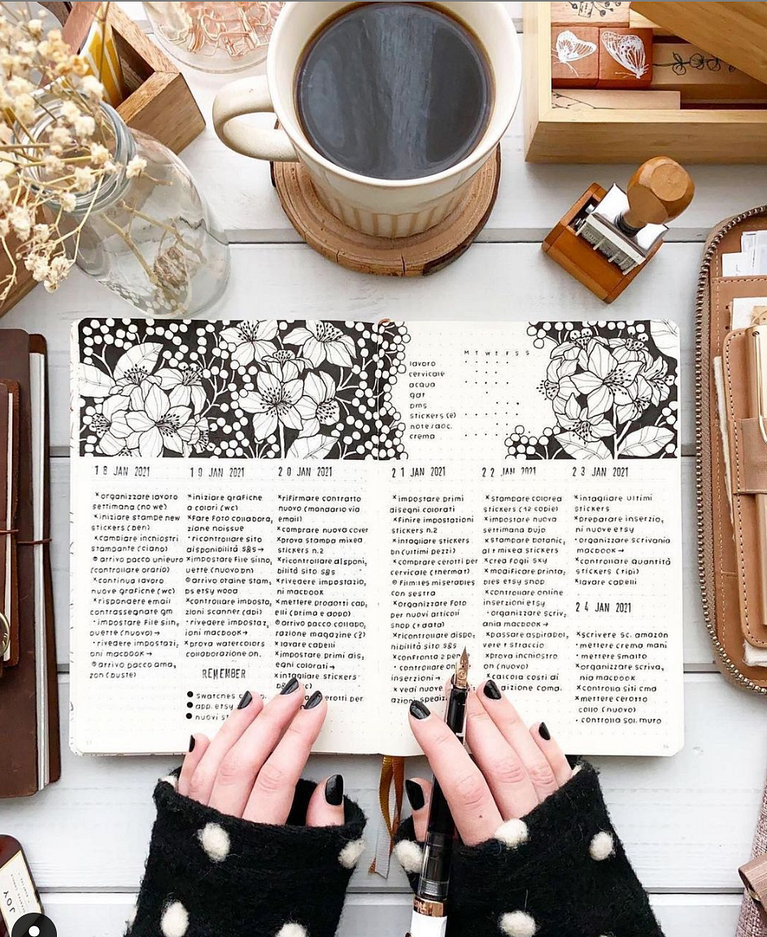 M T W T F S S
lavoro
cervicale
acqua
gat
pms
stickers (e)
note/aoc.
crema
18 JAN 2021
×organizzare lavoro
settimana (no we)
×iniziare stampe new
stickers (pen)
×cambiare inchiostri
stampante (ciano)
arrivo pacco unieuro
(controllare orario)
×continua lavoro
nuove grafiche (wc)
×rispondere email
contrassegnate gm
· impostare file siln,
ouette (nuovo)→
· rivedere impostazi,
oni macbook→
arrivo pacco ama,
zon (buste)
19 JAN 2021
×iniziare grafiche
a colori (wc)
×Fare foto collabora,
zione noissue
· ricontrollare sito
disponibilità s&s→
×impostare file silno,
uette (nuovo pn)
arrivo otaine stam,
ps etsy wood
×controllare imposta,
zioni scanner (dpi)
· rivedere impostaz,
ioni macbook→
×prova watercolors
collaborazione on.
REMEMBER
swatches
app. etsy
nuovi
20 JAN 2021
×rifirmare contratto
nuovo (mandario via
email)
×comprare nuova cover
×prova stampa mixed
stickers n.2
×ricontrollare disponi,
bilità sito s&s
×rivedere impostazio,
ni macbook
×mettere prodotti cap,
elli (prima e app)
arrivo pacco collabo,
razione magazine (2)
×lavare capelli
×impostare primi dis,
egni colorati→
×intagliare stickers
cerotti per
21 JAN 2021
×impostare primi
disegni colorati
×finire impostazioni
stickers n.2
×intagliare stickers
bn (ultimi pezzi)
×comprare cerotti per
cervicale (thermal)
Film: les miserables
con sestra
×organizzare foto
per nuovi articoli
shop (+data)
×ricontrollare dispo,
nibilità sito s&s
×confronta 2
inserzioni
×vedi nuov
22 JAN 2021
×stampare colored
stickers (12 copie)
×impostare nuova
settimana bujo
×stampare botanic,
al + mixed stickers
×crea fogli sky
×modificare printa,
bles etsy shop
×controllare online
inserzioni etsy
· organizzare scriv,
ania macbook→
×passare aspirapol,
vere + straccio
×prova inchiostro
on (nuovo)
×calcola costi di
23 JAN 2021
×intagliare ultimi
stickers
×preparare inserzio,
ni nuove etsy
· organizzare scrivania
macbook→
×controllare quantità
stickers (tipi)
×lavare capelli
24 JAN 2021
×scrivere sc. amazon
· mettere crema mani
· mettere smalto
×organizzare scriva,
nia macbook
×controlla siti cma
× mettere crema
collo (nuovo)
· controlla sol. muro
JOY